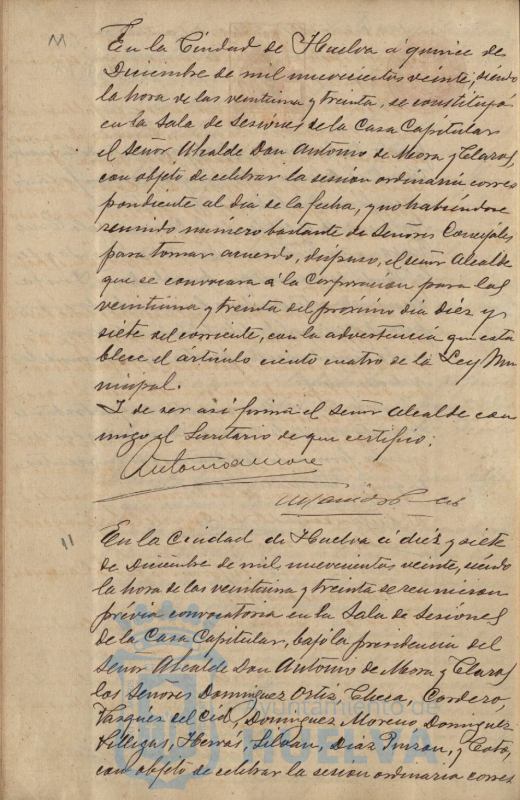 En la Ciudad de Huelva á quince de
Diciembre de mil nuevecientos veinte, siendo
la hora de las veintiuna y treinta, se constituyó
en la Sala de Sesiones de la Casa Capitular
el Señor Alcalde Don Antonio de Mora y Claros,
con objeto de celebrar la sesión ordinaria corres
pondiente al dia de la fecha, y no habiéndose
reunido número bastante de Señores Concejales
para tomar acuerdo, dispuso, el señor Alcalde
que se convocara á la Corporación para las
veintiuna y treinta del próximo dia diéz y
siete del corriente, con la advertencia que esta
blece el artículo ciento cuatro de la Ley Mu
nicipal.
Y de ser así firma el Señor Alcalde con
migo el Secretario de que certifico:
Antonio de Mora
11
En la Ciudad de Huelva á diéz y siete
de Diciembre de mil nuevecientos veinte, siendo
la hora de las veintiuna y treinta se reunieron
prévia convocatoria en la Sala de Sesiones
de la Casa Capitular, bajo la presidencia del
Señor Alcalde Don Antonio de Mora y Claros
los Señores Dominguez Ortiz, Checa, Cordero,
Vazquez del Cid, Dominguez Moreno, Dominguez
Villegas, Hervás, Silván, Diaz Pinzon, y Coto,
con objeto de celebrar la sesión ordinaria corres
Ayuntamiento de
HUELVA